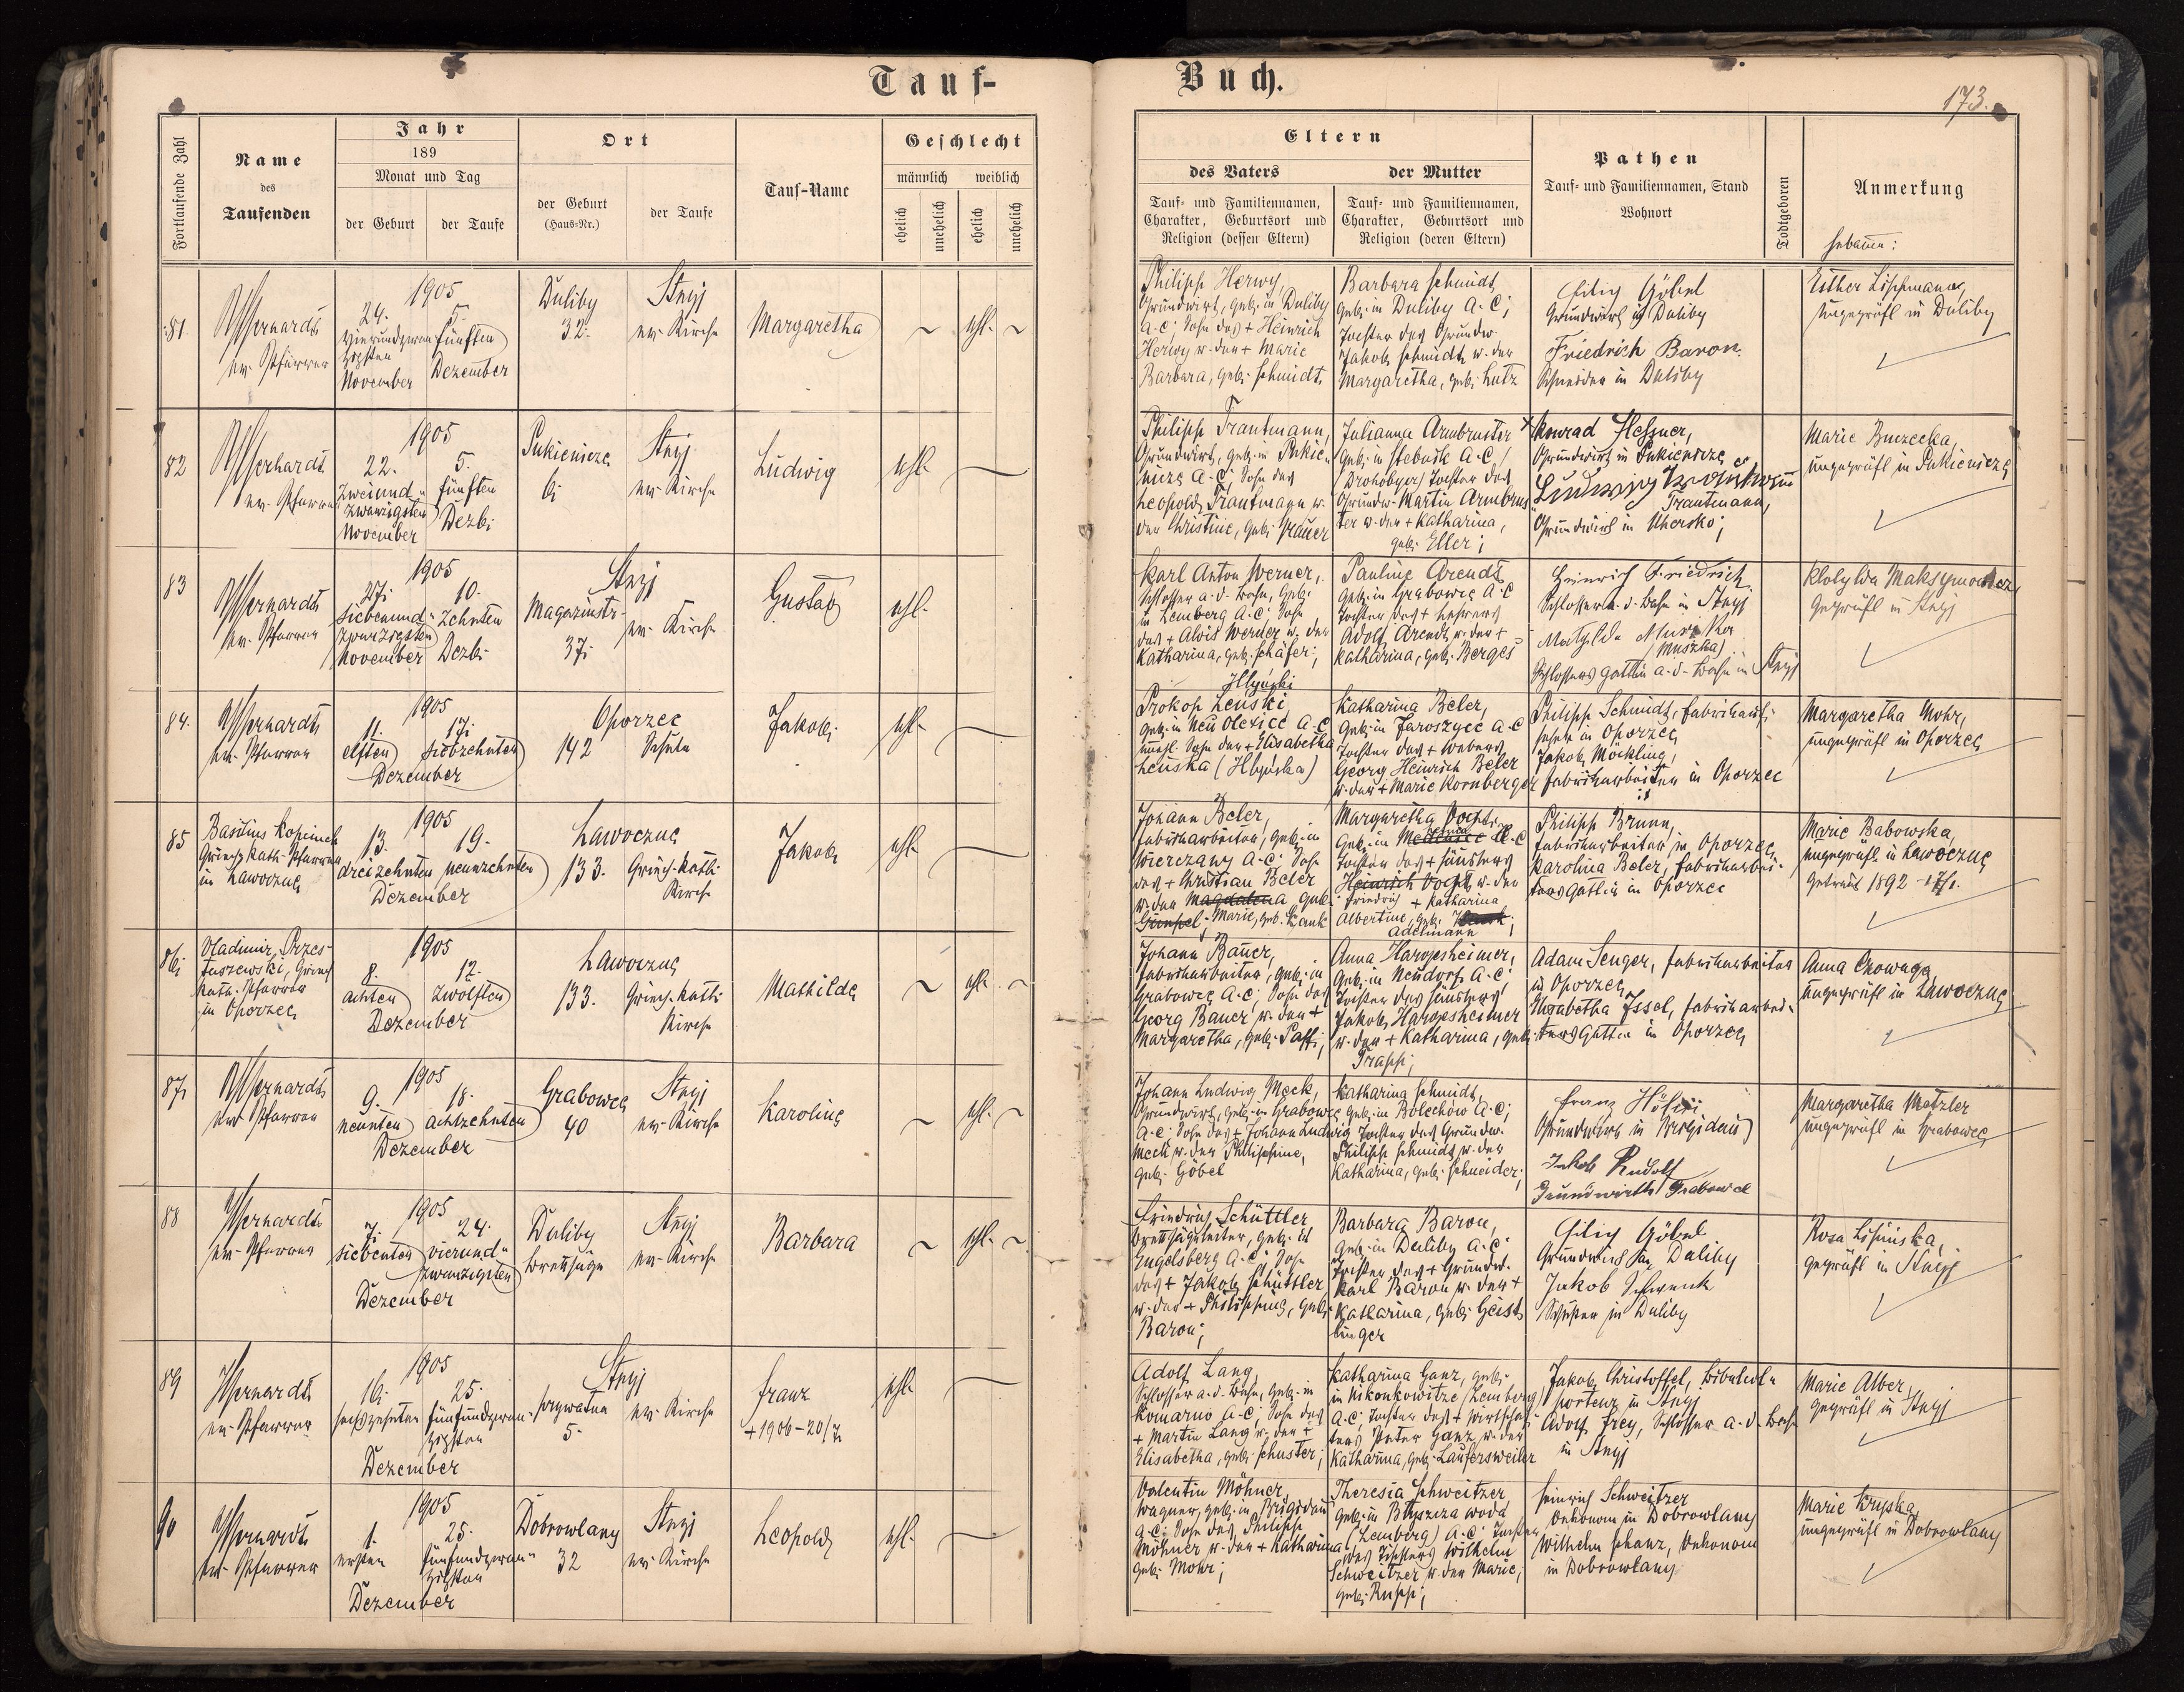 Tauf-
Buch.
173.
Fortlaufende Zahl
Name
des
Taufenden
Jahr
189
Monat und Tag
der Geburt
der Taufe
Ort
der Geburt
(Haus-Nr.)
der Taufe
Tauf-Name
Geschlecht
männlich weiblich
ehelich
unehelich
ehelich
unehelich
Eltern
des Vaters
Tauf- und Familiennamen,
Charakter, Geburtsort und
Religion (dessen Eltern)
der Mutter
Tauf- und Familiennamen,
Charakter, Geburtsort und
Religion (deren Eltern)
Pathen
Tauf- und Familiennamen, Stand
Wohnort
Todtgeboren
Anmerkung
Hebamme:
81
ev. Pfarrer
1905
24.
vierundzwan-
zigsten
November
5.
fünften
Dezember
Duliby
32.
Stryj
ev. Kirche
Margaretha
ehl.
Philipp Herwy,
Grundwirt, geb. in Duliby
A.C; Sohn des + Heinrich
Herwy u. der + Marie
Barbara, geb. Schmidt
Barbara Schmidt,
geb. in Duliby A.C;
Tochter des Grundw.
Jakob Schmidt u. der
Margaretha, geb. Lutz
Göbel
Grundwirt in Duliby
Friedrich Baron
Schneider in Duliby
Esther Lippmann,
ungeprüft in Duliby
82
ev. Pfarrer
1905
22.
zweiund-
zwanzigsten
November
5.
fünften
Dezb.
Pukienicze
6
Stryj
ev. Kirche
Ludwig
ehl.
Philipp Trautmann,
Grundwirt, geb. in Pukie-
nicze A.C; Sohn des
Leopold Trautmann u.
der Christine, geb. Brauer
Julianna Armbruster
geb. in Stebnik A.C
(Drohobycz) Tochter des
Grundw. Martin Armbrus
ter u. der + Katharina,
geb. Eller;
Konrad
Grundwirt in Pukienicze
Ludwig
Trautmann,
Grundwirt in Uhersko;
Marie
ungeprüft in Pukienicze
83
ev. Pfarrer
1905
27.
siebenund-
zwanzigsten
November
10.
Zehnten
Dezb.
Stryj
Magazinstr.
37.
ev. Kirche
Gustav
ehl.
Karl Anton Werner,
Schlosser a. d. Bahn, geb.
in Lemberg A.C; Sohn
des + Alois Werner u. der
Katharina, geb. Schäfer;
Pauline Arendt
geb. in Grabowce A.C
Tochter des + Lehrers
Adolf Arendt u. der +
Katharina, geb. Berges
Heinrich Friedrich
Schlosser a. d. Bahn in Stryj
Matylda
(Muszka)
Schlossers Gattin a. d. Bahn in Stryj
geprüft in Stryj
84.
ev. Pfarrer
1905
11.
elften
17.
siebzehnten
Dezember
Oporzec
142
Schule
Jakob
ehl.
Illyński
Prokop Leuski,
geb. in Neu Olexice A.C
unehl. Sohn der + Elisabetha
Leuska (Illyńska)
Katharina Beler,
geb. in Jaroszyce A.C
Tochter des + Webers
Georg Heinrich Beler
u. der + Marie Kornberger
Philipp Schmidt,
in Oporzec
Jakob Möckling,
Fabriksarbeiter in Oporzec
Margaretha Mohr,
ungeprüft in Oporzec
85
Basilius
Griech. kath. Pfarrer
in Lawoczne
1905
13.
dreizehnten
19.
neunzehnten
Dezember
Lawoczne
133.
Griech. kath.
Kirche
Jakob
ehl.
Johann Beler,
Fabriksarbeiter, geb. in
Wierczany A.C; Sohn
des + Christian Beler
u. der Magdalena geb.
Gimpel; Marie, geb. Hank
Margaretha Vogt,
geb. in A.C
Tochter des + Häuslers
Heinrich Vogt u. der
Friedrich + Katharina
Albertine, geb.
Adelmann
Philipp Brunn,
Fabriksarbeiter in Oporzec
Karolina Beler, Fabriksarbei-
ters Gattin in Oporzec
Marie Babowska,
ungeprüft in Lawoczne
Getraut 1892
86
Vladimir Przes-
Griech.
kath. Pfarrer
in Oporzec
1905
8.
achten
12.
zwölften
Dezember
Lawoczne
133.
Griech. kath.
Kirche
Mathilde
ehl.
Johann Bauer,
Fabriksarbeiter, geb. in
Grabowce A.C; Sohn des
Georg Bauer u. der +
Margaretha, geb. Paff;
Anna Hargesheimer,
geb. in Neudorf A.C;
Tochter des Häuslers
Jakob Hargesheimer
u. der + Katharina, geb.
Trapp;
Adam Senger, Fabriksarbeiter
in Oporzec
Elisabetha Issel, Fabriksarbei-
ters Gattin in Oporzec
Anna
ungeprüft in Lawoczne
87
ev. Pfarrer
1905
9.
neunten
18.
achtzehnten
Dezember
Grabowce
40
Stryj
ev. Kirche
Karoline
ehl.
Johann Ludwig Meck,
Grundwirt, geb. in Grabowce
A.C; Sohn des + Johann Ludwig
Meck u. der Philippine,
geb. Göbel
Katharina Schmidt,
geb. in Bolechów A.C;
Tochter des Grundw.
Philipp Schmidt u. der
Katharina, geb. Schneider;
Franz
Grundwirt in Brigidau
Jakob Rudolf
Grundwirth Grabowce
Margaretha Metzler
ungeprüft in Grabowce
88
ev. Pfarrer
1905
7.
siebenten
24.
vierund-
zwanzigsten
Dezember
Duliby
Brettsäge
Stryj
ev. Kirche
Barbara
ehl.
Friedrich Schüttler,
Brettsägeleiter, geb. in
Engelsberg A.C; Sohn
des + Jakob Schüttler
u. der + Philippine, geb.
Baron;
Barbara Baron,
geb. in Duliby A.C;
Tochter des + Grundw.
Karl Baron u. der +
Katharina, geb. Geist
linger
Göbel
Grundwirt in Duliby
Jakob Schwenk
in Duliby
Rosa
geprüft in Stryj
89
ev. Pfarrer
1905
16.
sechszehnten
25.
fünfundzwan-
zigsten
Dezember
Stryj
5.
ev. Kirche
Franz
+ 1906 - 20/7
ehl.
Adolf Lang,
Schlosser a. d. Bahn, geb. in
Komarno A.C; Sohn des
+ Martin Lang u. der +
Elisabetha, geb. Schuster;
Katharina Ganz, geb.
in Nikonkowitze (Lemberg)
A.C; Tochter des +
Peter Ganz u. der
Katharina, geb. Laufersweiler
Jakob Christoffel,
in Stryj
Adolf Frey, Schlosser a. d. Bahn
in Stryj
Marie Alber,
geprüft in Stryj
90
ev. Pfarrer
1905
1.
ersten
25.
fünfundzwan-
zigsten
Dezember
Dobrowlany
32
Stryj
ev. Kirche
Leopold
ehl.
Valentin Möhner,
Wagner, geb. in Brigidau
A.C; Sohn des Philipp
Möhner u. der + Katharina
geb. Mohr;
Theresia Schweitzer
geb. in
(Lemberg) A.C; Tochter
des Tischlers Wilhelm
Schweitzer u. der Marie,
geb. Rupp;
Heinrich Schweitzer
Oekonom in Dobrowlany
Wilhelm Schanz, Oekonom
in Dobrowlany
Marie
ungeprüft in Dobrowlany